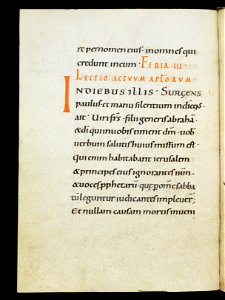 re pernomen eius· inomnes qui
credunt ineum· FERIA·III·
LECTIO ACTUUM APL̄ORUM·
INDIEBUS ILLIS· SURGENS
paulus· et manu silentium indicens
ait· Uiri fr̄s· filii generis abrahā·
& qui inuobis timent dm̄· uob
uerbum salutis huius missum est·
Qui enim habitabant ierusalem
& principes eius ignorantes ihm̄·
& uoces pphetarū· que pom̄e sabba
tū leguntur· iudicantes impleuer̄·
Et nullam causam mortis inuen